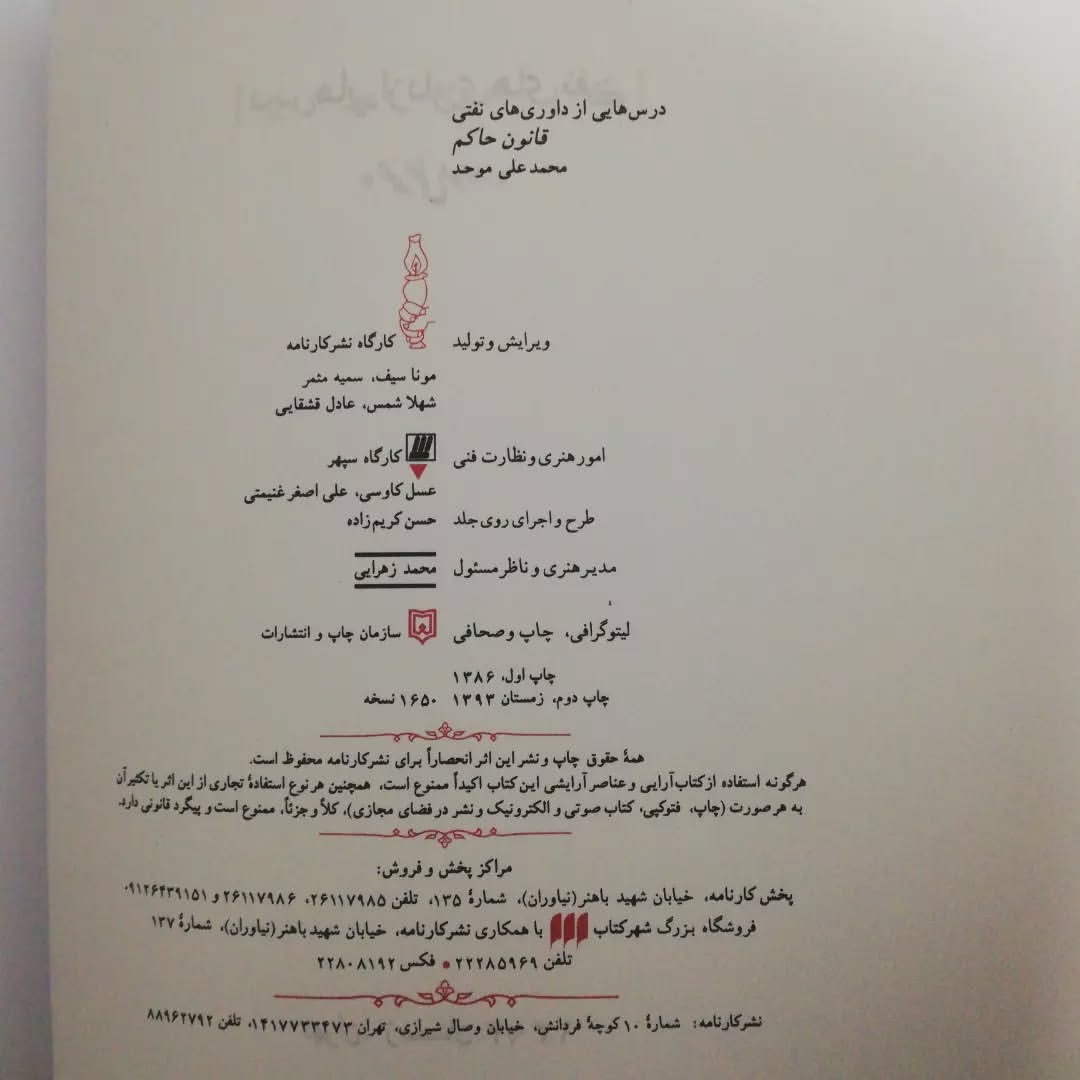 درس‌هایی از داوری‌های نفتی
قانون حاکم
محمدعلی موحد
ویرایش و تولید کارگاه نشرکارنامه
مونا سیف، سمیه مثمر
شهلا شمس، عادل قشقایی
امور هنری و نظارت فنی کارگاه سپهر
عسل کاوسی، علی اصغر غنیمتی
طرح و اجرای روی جلد حسن کریم‌زاده
مدیر هنری و ناظر مسئول محمد زهرایی
لیتوگرافی، چاپ و صحافی سازمان چاپ و انتشارات
چاپ اول، ۱۳۸۶
چاپ دوم، زمستان ۱۳۹۳ ۱۶۵۰ نسخه
همهٔ حقوق چاپ و نشر این اثر انحصاراً برای نشرکارنامه محفوظ است.
هرگونه استفاده از کتاب‌آرایی و عناصر آرایشی این کتاب اکیداً ممنوع است، همچنین هر نوع استفادهٔ تجاری از این اثر یا تکثیر آن
به هر صورت (چاپ، فتوکپی، کتاب صوتی و الکترونیک و نشر در فضای مجازی)، کلاً و جزئاً، ممنوع است و پیگرد قانونی دارد.
مراکز پخش و فروش:
پخش کارنامه، خیابان شهید باهنر (نیاوران)، شمارهٔ ۱۳۵، تلفن ۲۶۱۱۷۹۸۵، ۲۶۱۱۷۹۸۶ و ۰۹۱۲۶۴۳۹۱۵۱
فروشگاه بزرگ شهرکتاب با همکاری نشرکارنامه، خیابان شهید باهنر (نیاوران)، شمارهٔ ۱۳۷
تلفن ۲۲۲۸۵۹۶۹ • فکس ۲۲۸۰۸۱۹۲
نشرکارنامه: شمارهٔ ۱۰ کوچهٔ فردانش، خیابان وصال شیرازی، تهران ۱۴۱۷۷۳۳۴۷۳، تلفن ۸۸۹۶۲۷۹۲